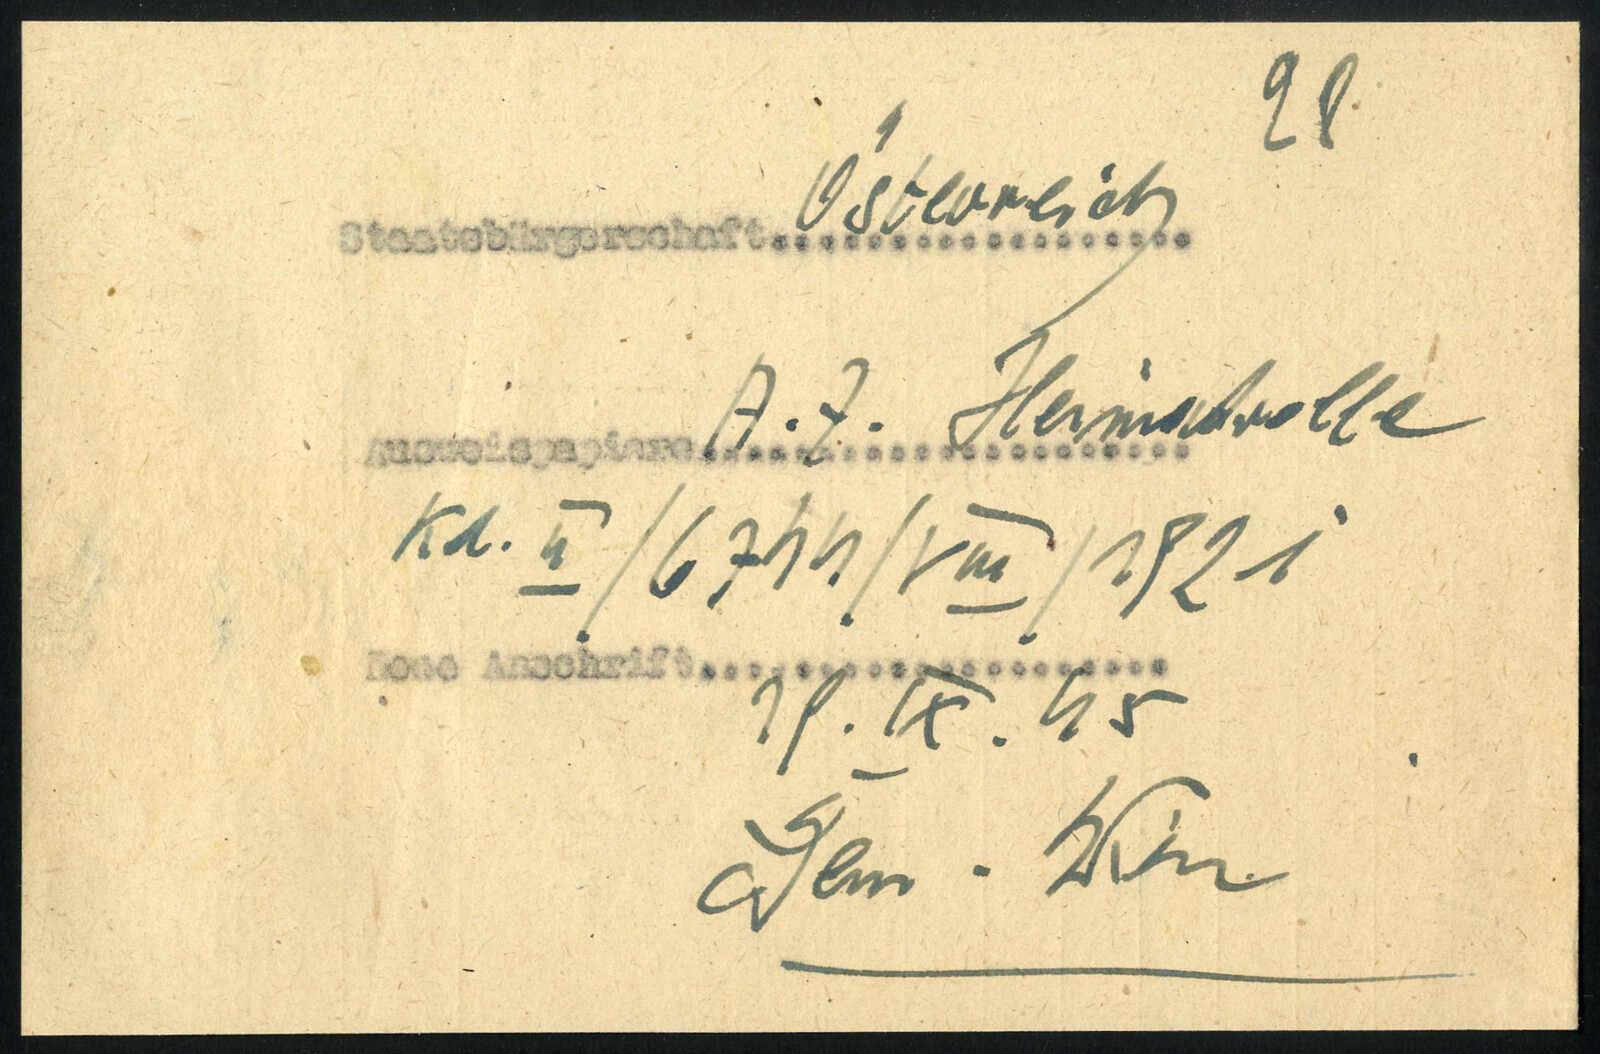 28
Staatsbürgerschaft Österreich
Ausweispapiere A. Z. Heimatrolle
Kd. II/6744/VIII/1921
Neue Anschrift
19. IX. 45
Gem. Wien